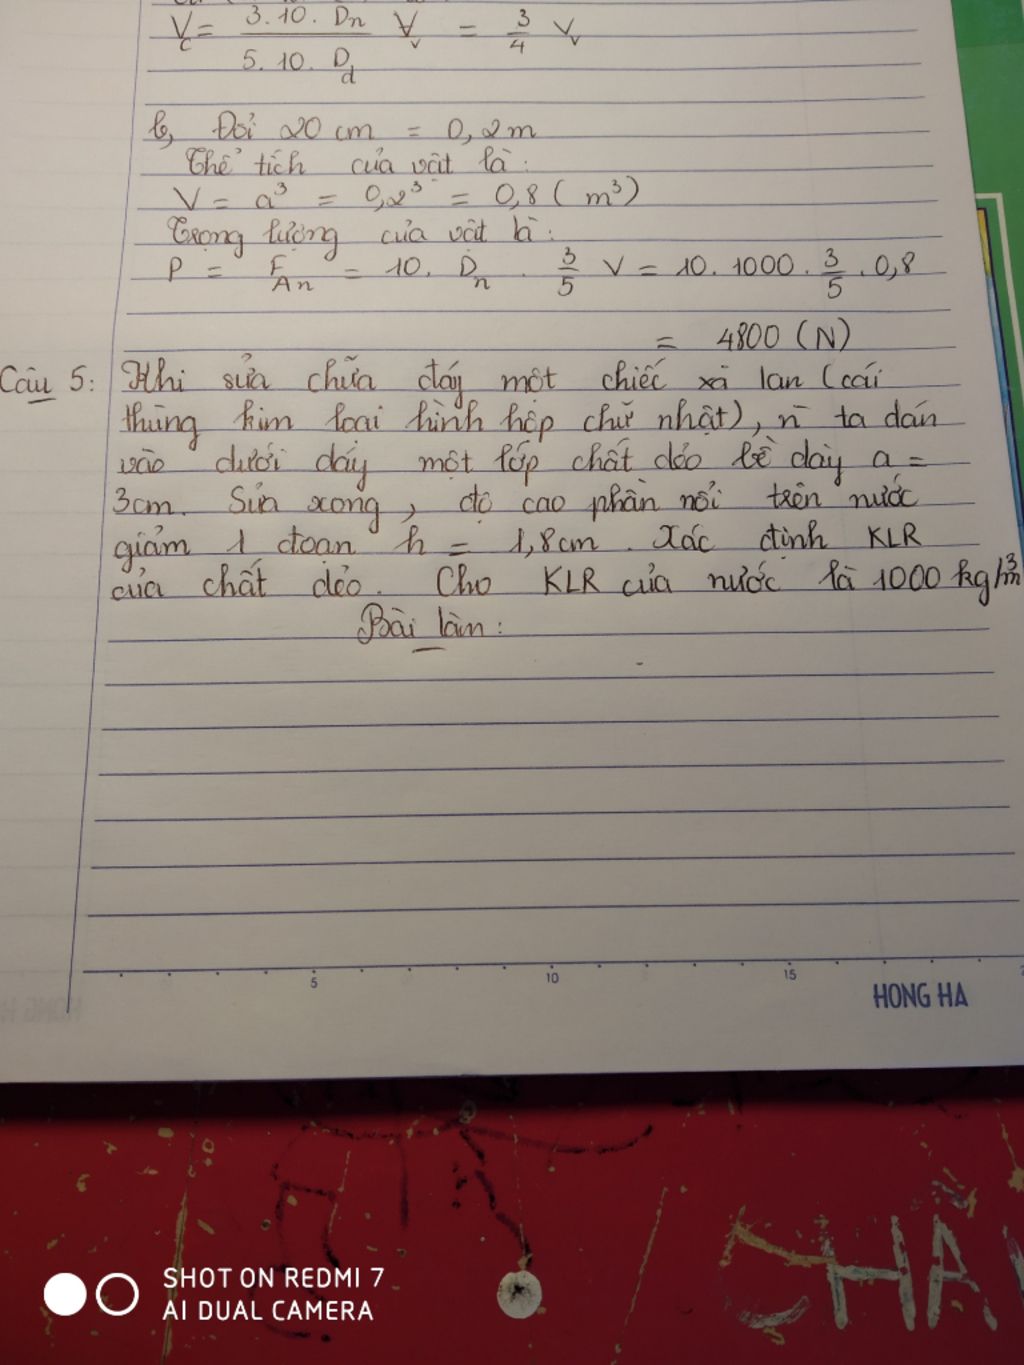 V_c = 3.10. D_n / 5.10. D_d V_v = 3/4 V_v
b, Đổi 20 cm = 0,2m
Thể tích của vật là:
V = a³ = 0,2³ = 0,8 ( m³)
Trọng lượng của vật là:
P = F_An = 10. D_n . 3/5 V = 10. 1000. 3/5 . 0,8
= 4800 (N)
Câu 5: Khi sửa chữa đáy một chiếc xà lan (cái
thùng kim loại hình hộp chữ nhật), n ta dán
vào dưới đáy một lớp chất dẻo bề dày a =
3cm. Sửa xong, độ cao phần nổi trên nước
giảm 1 đoạn h = 1,8cm. Xác định KLR
của chất dẻo. Cho KLR của nước là 1000 kg/m³
Bài làm:
5 10 15
HONG HA
CHÀ
SHOT ON REDMI 7
AI DUAL CAMERA